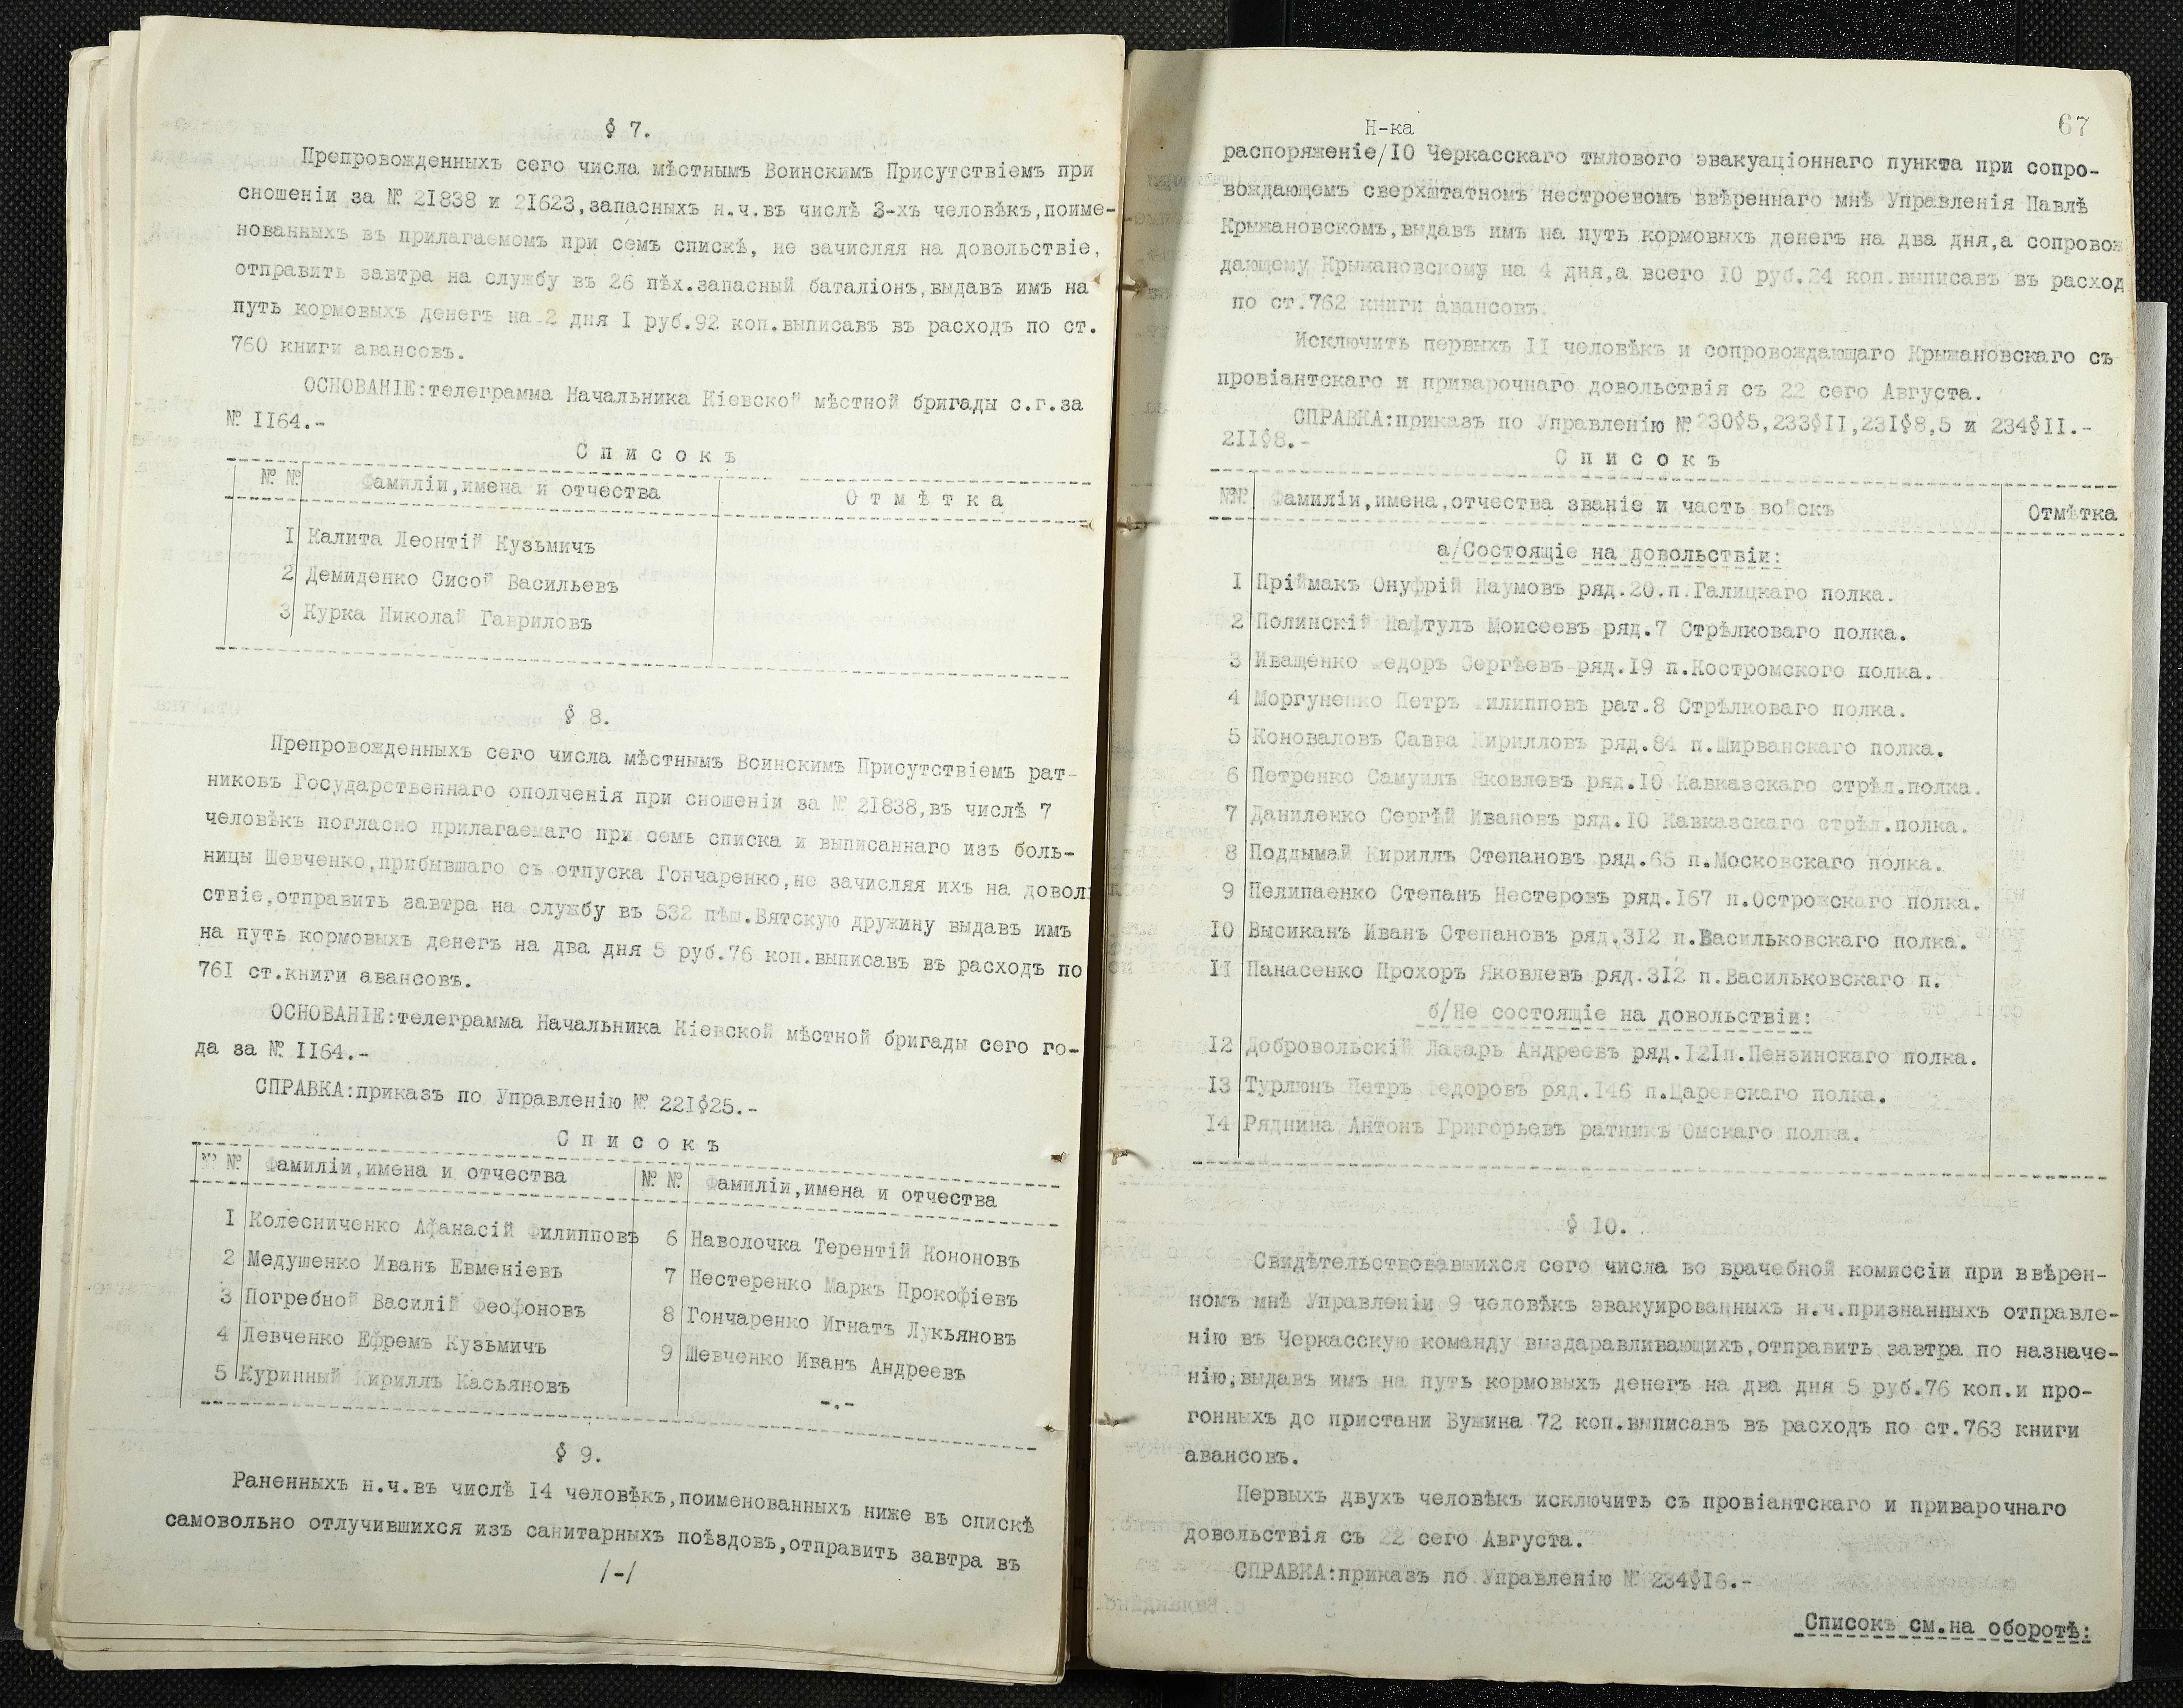 § 7.
Препровожденныхъ сего числа мѣстнымъ Воинскимъ Присутствіемъ при
сношеніи за № 21838 и 21623,запасныхъ н.ч.въ числѣ 3-хъ человѣкъ,поиме-
нованныхъ въ прилагаемомъ при семъ спискѣ, не зачисляя на довольствіе,
отправить завтра на службу въ 26 пѣх.запасный баталіонъ,выдавъ имъ на
путь кормовыхъ денегъ на 2 дня I руб.92 коп.выписавъ въ расходъ по ст.
760 книги авансовъ.
ОСНОВАНІЕ:телеграмма Начальника Кіевской мѣстной бригады с.г.за
№ II64.-
Списокъ
№ № Фамиліи,имена и отчества Отмѣтка
I Калита Леонтій Кузьмичъ
2 Демиденко Сисой Васильевъ
3 Курка Николай Гавриловъ
§ 8.
Препровожденныхъ сего числа мѣстнымъ Воинскимъ Присутствіемъ рат-
никовъ Государственнаго ополченія при сношеніи за № 21838,въ числѣ 7
человѣкъ погласно прилагаемаго при семъ списка и выписаннаго изъ боль-
ницы Шевченко,прибывшаго съ отпуска Гончаренко,не зачисляя ихъ на довол
ствіе,отправить завтра на службу въ 532 пѣш.Вятскую дружину выдавъ имъ
на путь кормовыхъ денегъ на два дня 5 руб.76 коп.выписавъ въ расходъ по
76I ст.книги авансовъ.
ОСНОВАНІЕ:телеграмма Начальника Кіевской мѣстной бригады сего го-
да за № II64.-
СПРАВКА:приказъ по Управленію № 22I§25.-
Списокъ
№ № Фамиліи,имена и отчества № № Фамиліи,имена и отчества
I Колесниченко Афанасій Филипповъ 6 Наволочка Терентій Кононовъ
2 Медушенко Иванъ Евменіевъ 7 Нестеренко Маркъ Прокофіевъ
3 Погребной Василій Феофоновъ 8 Гончаренко Игнатъ Лукьяновъ
4 Левченко Ефремъ Кузьмичъ 9 Шевченко Иванъ Андреевъ
5 Куринный Кириллъ Касьяновъ -.-
§ 9.
Раненныхъ н.ч.въ числѣ I4 человѣкъ,поименованныхъ ниже въ спискѣ
самовольно отлучившихся изъ санитарныхъ поѣздовъ,отправить завтра въ
/-/
67
Н-ка
распоряженіе/IO Черкасскаго тылового эвакуаціоннаго пункта при сопро-
вождающемъ сверхштатномъ нестроевомъ ввѣреннаго мнѣ Управленія Павлѣ
Крыжановскомъ,выдавъ имъ на путь кормовыхъ денегъ на два дня,а сопровож
дающему Крыжановскому на 4 дня,а всего IO руб.24 коп.выписавъ въ расход
по ст.762 книги авансовъ.
Исключить первыхъ II человѣкъ и сопровождающаго Крыжановскаго съ
провіантскаго и приварочнаго довольствія съ 22 сего Августа.
СПРАВКА:приказъ по Управленію № 230§5,233§II,23I§8,5 и 234§II.-
2II§8.-
Списокъ
№№ Фамиліи,имена,отчества званіе и часть войскъ Отмѣтка
а/Состоящіе на довольствіи:
I Пріймакъ Онуфрій Наумовъ ряд.20.п.Галицкаго полка.
2 Полинскій Нафтулъ Моисеевъ ряд.7 Стрѣлковаго полка.
3 Иващенко Федоръ Сергѣевъ ряд.I9 п.Костромского полка.
4 Моргуненко Петръ Филипповъ рат.8 Стрѣлковаго полка.
5 Коноваловъ Савва Кирилловъ ряд.84 п.Ширванскаго полка.
6 Петренко Самуилъ Яковлевъ ряд.IO Кавказскаго стрѣл.полка.
7 Даниленко Сергѣй Ивановъ ряд.IO Кавказскаго стрѣл.полка.
8 Поддымай Кириллъ Степановъ ряд.65 п.Московскаго полка.
9 Пелипаенко Степанъ Нестеровъ ряд.I67 п.Острожскаго полка.
IO Высиканъ Иванъ Степановъ ряд.3I2 п.Васильковскаго полка.
II Панасенко Прохоръ Яковлевъ ряд.3I2 п.Васильковскаго п.
б/Не состоящіе на довольствіи:
I2 Добровольскій Лазарь Андреевъ ряд.I2Iп.Пензинскаго полка.
I3 Турлюнъ Петръ Федоровъ ряд.I46 п.Царевскаго полка.
I4 Ряднина Антонъ Григорьевъ ратникъ Омскаго полка.
§ IO.
Свидѣтельствовавшихся сего числа во врачебной комиссіи при ввѣрен-
номъ мнѣ Управленіи 9 человѣкъ эвакуированныхъ н.ч.признанныхъ отправле-
нію въ Черкасскую команду выздаравливающихъ,отправить завтра по назначе-
нію,выдавъ имъ на путь кормовыхъ денегъ на два дня 5 руб.76 коп.и про-
гонныхъ до пристани Бужина 72 коп.выписавъ въ расходъ по ст.763 книги
авансовъ.
Первыхъ двухъ человѣкъ исключить съ провіантскаго и приварочнаго
довольствія съ 22 сего Августа.
СПРАВКА:приказъ по Управленію № 234§I6.-
Списокъ см.на оборотѣ: